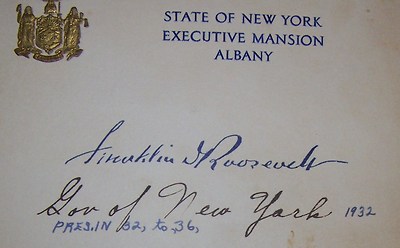 STATE OF NEW YORK
EXECUTIVE MANSION
ALBANY
Franklin D Roosevelt
Gov of New York 1932
PRES. IN 32, to 36,